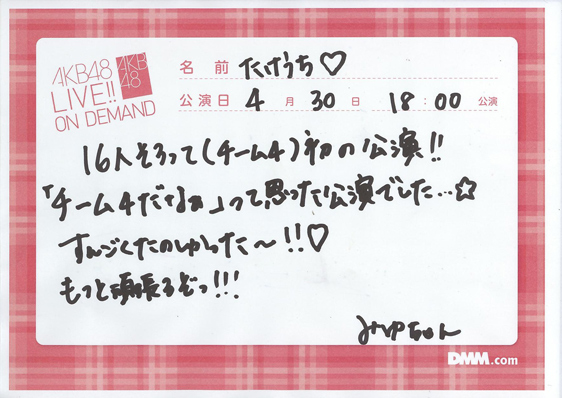 AKB48
LIVE!!
ON DEMAND
AKB
48
名前 たけうち♡
公演日 4月30日 18:00 公演
16人そろって(チーム4)初の公演!!
「チーム4だなぁ」って思った公演でした…☆
すんごくたのしかった〜!!♡
もっと頑張るぞっ!!!
みゆちゃん
DMM.com